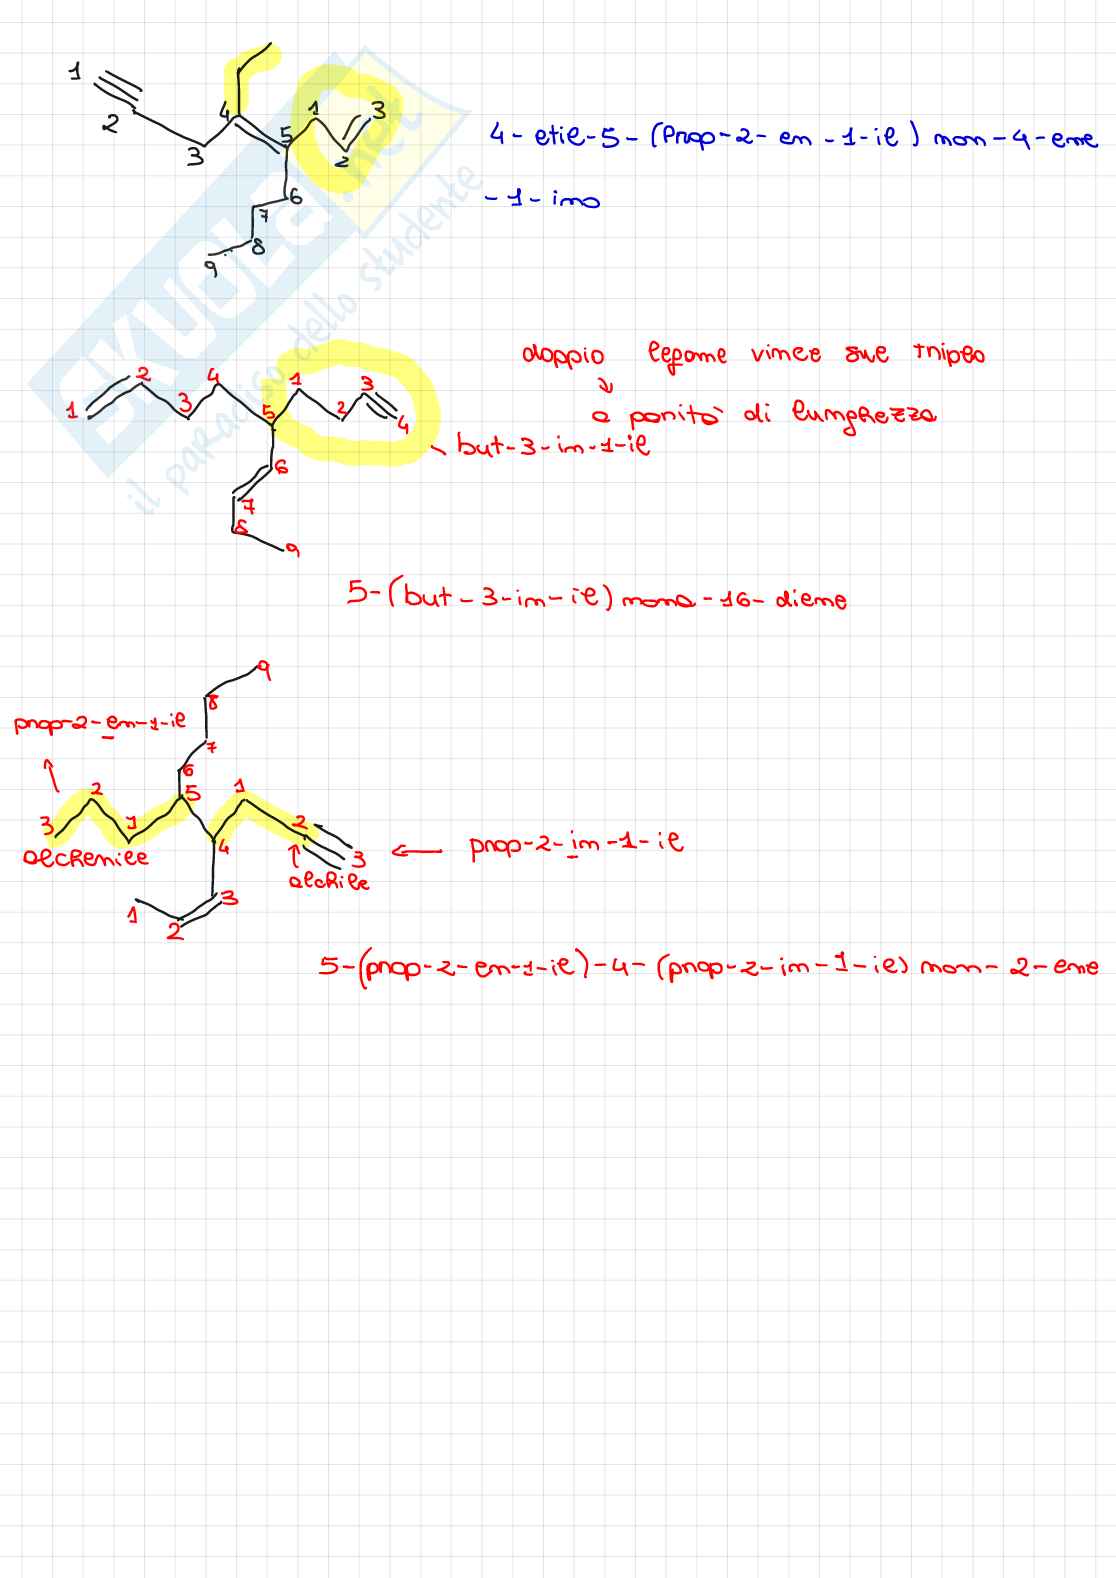 1
2
3
4
5
1
2
3
6
7
8
9
4-etil-5-(Prop-2-en-1-il) non-4-ene
-1-ino
SKUOLA.net
il paradiso dello studente
doppio legame vince sul triplo
a parità di lunghezza
1
2
3
4
5
1
2
3
4
6
7
8
9
but-3-in-1-il
5-(but-3-in-il) nona-16-diene
9
8
7
6
5
prop-2-en-1-il
3
2
1
alchenile
4
1
2
3
alchile
prop-2-in-1-il
3
2
1
5-(prop-2-en-1-il)-4-(prop-2-in-1-il) non-2-ene